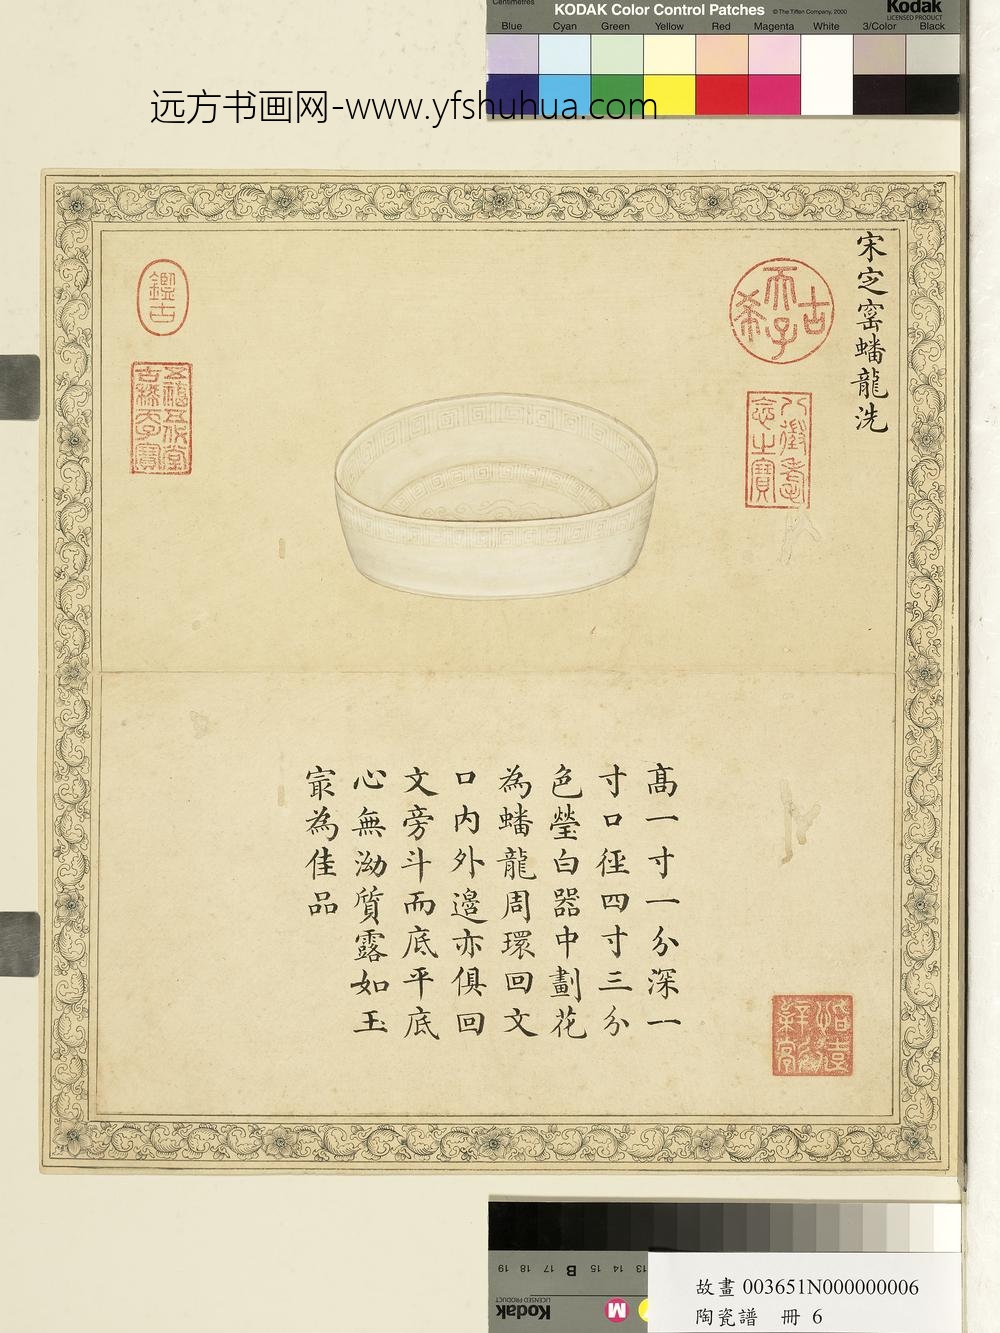 Centimetres
KODAK Color Control Patches
©The Tiffen Company, 2000
Kodak
LICENSED PRODUCT
Blue Cyan Green Yellow Red Magenta White 3/Color Black
远方书画网-www.yfshuhua.com
宋定窑蟠龍洗
古希天子
八徵耄念之寶
鑑古
五福五代堂古稀天子寶
高一寸一分深一
寸口徑四寸三分
色瑩白器中劃花
為蟠龍周環回文
口内外邊亦俱回
文旁斗而底平底
心無泑質露如玉
㝡為佳品
19 18 17 B 15 14 13
Kodak
LICENSED PRODUCT
M
故畫 003651N000000006
陶瓷譜 冊 6